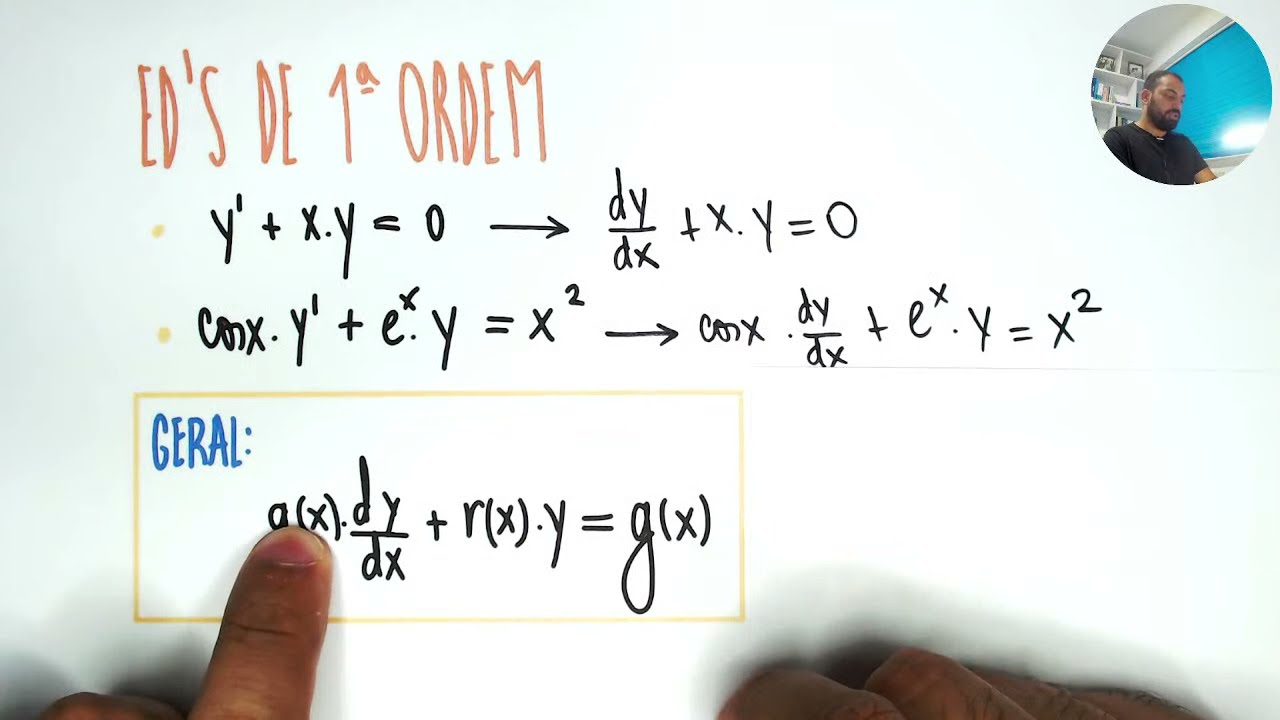 ED'S DE 1ª ORDEM
y' + x.y = 0 → dy/dx + x.y = 0
cosx.y' + eˣ.y = x² → cosx.dy/dx + eˣ.y = x²
GERAL:
(x).dy/dx + r(x).y = g(x)